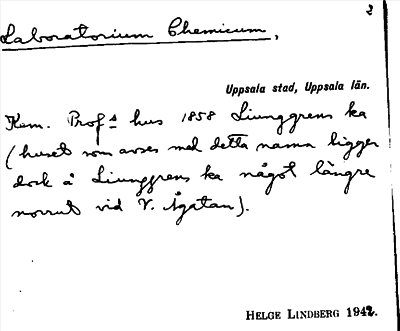 2
Laboratorium Chemicum,
Uppsala stad, Uppsala län.
Kem. Prof:s hus 1858 Liunggrens ka
(huset som avses med detta namn ligger
dock å Liunggrens ka något längre
norrut vid V. Ågatan).
HELGE LINDBERG 1942.